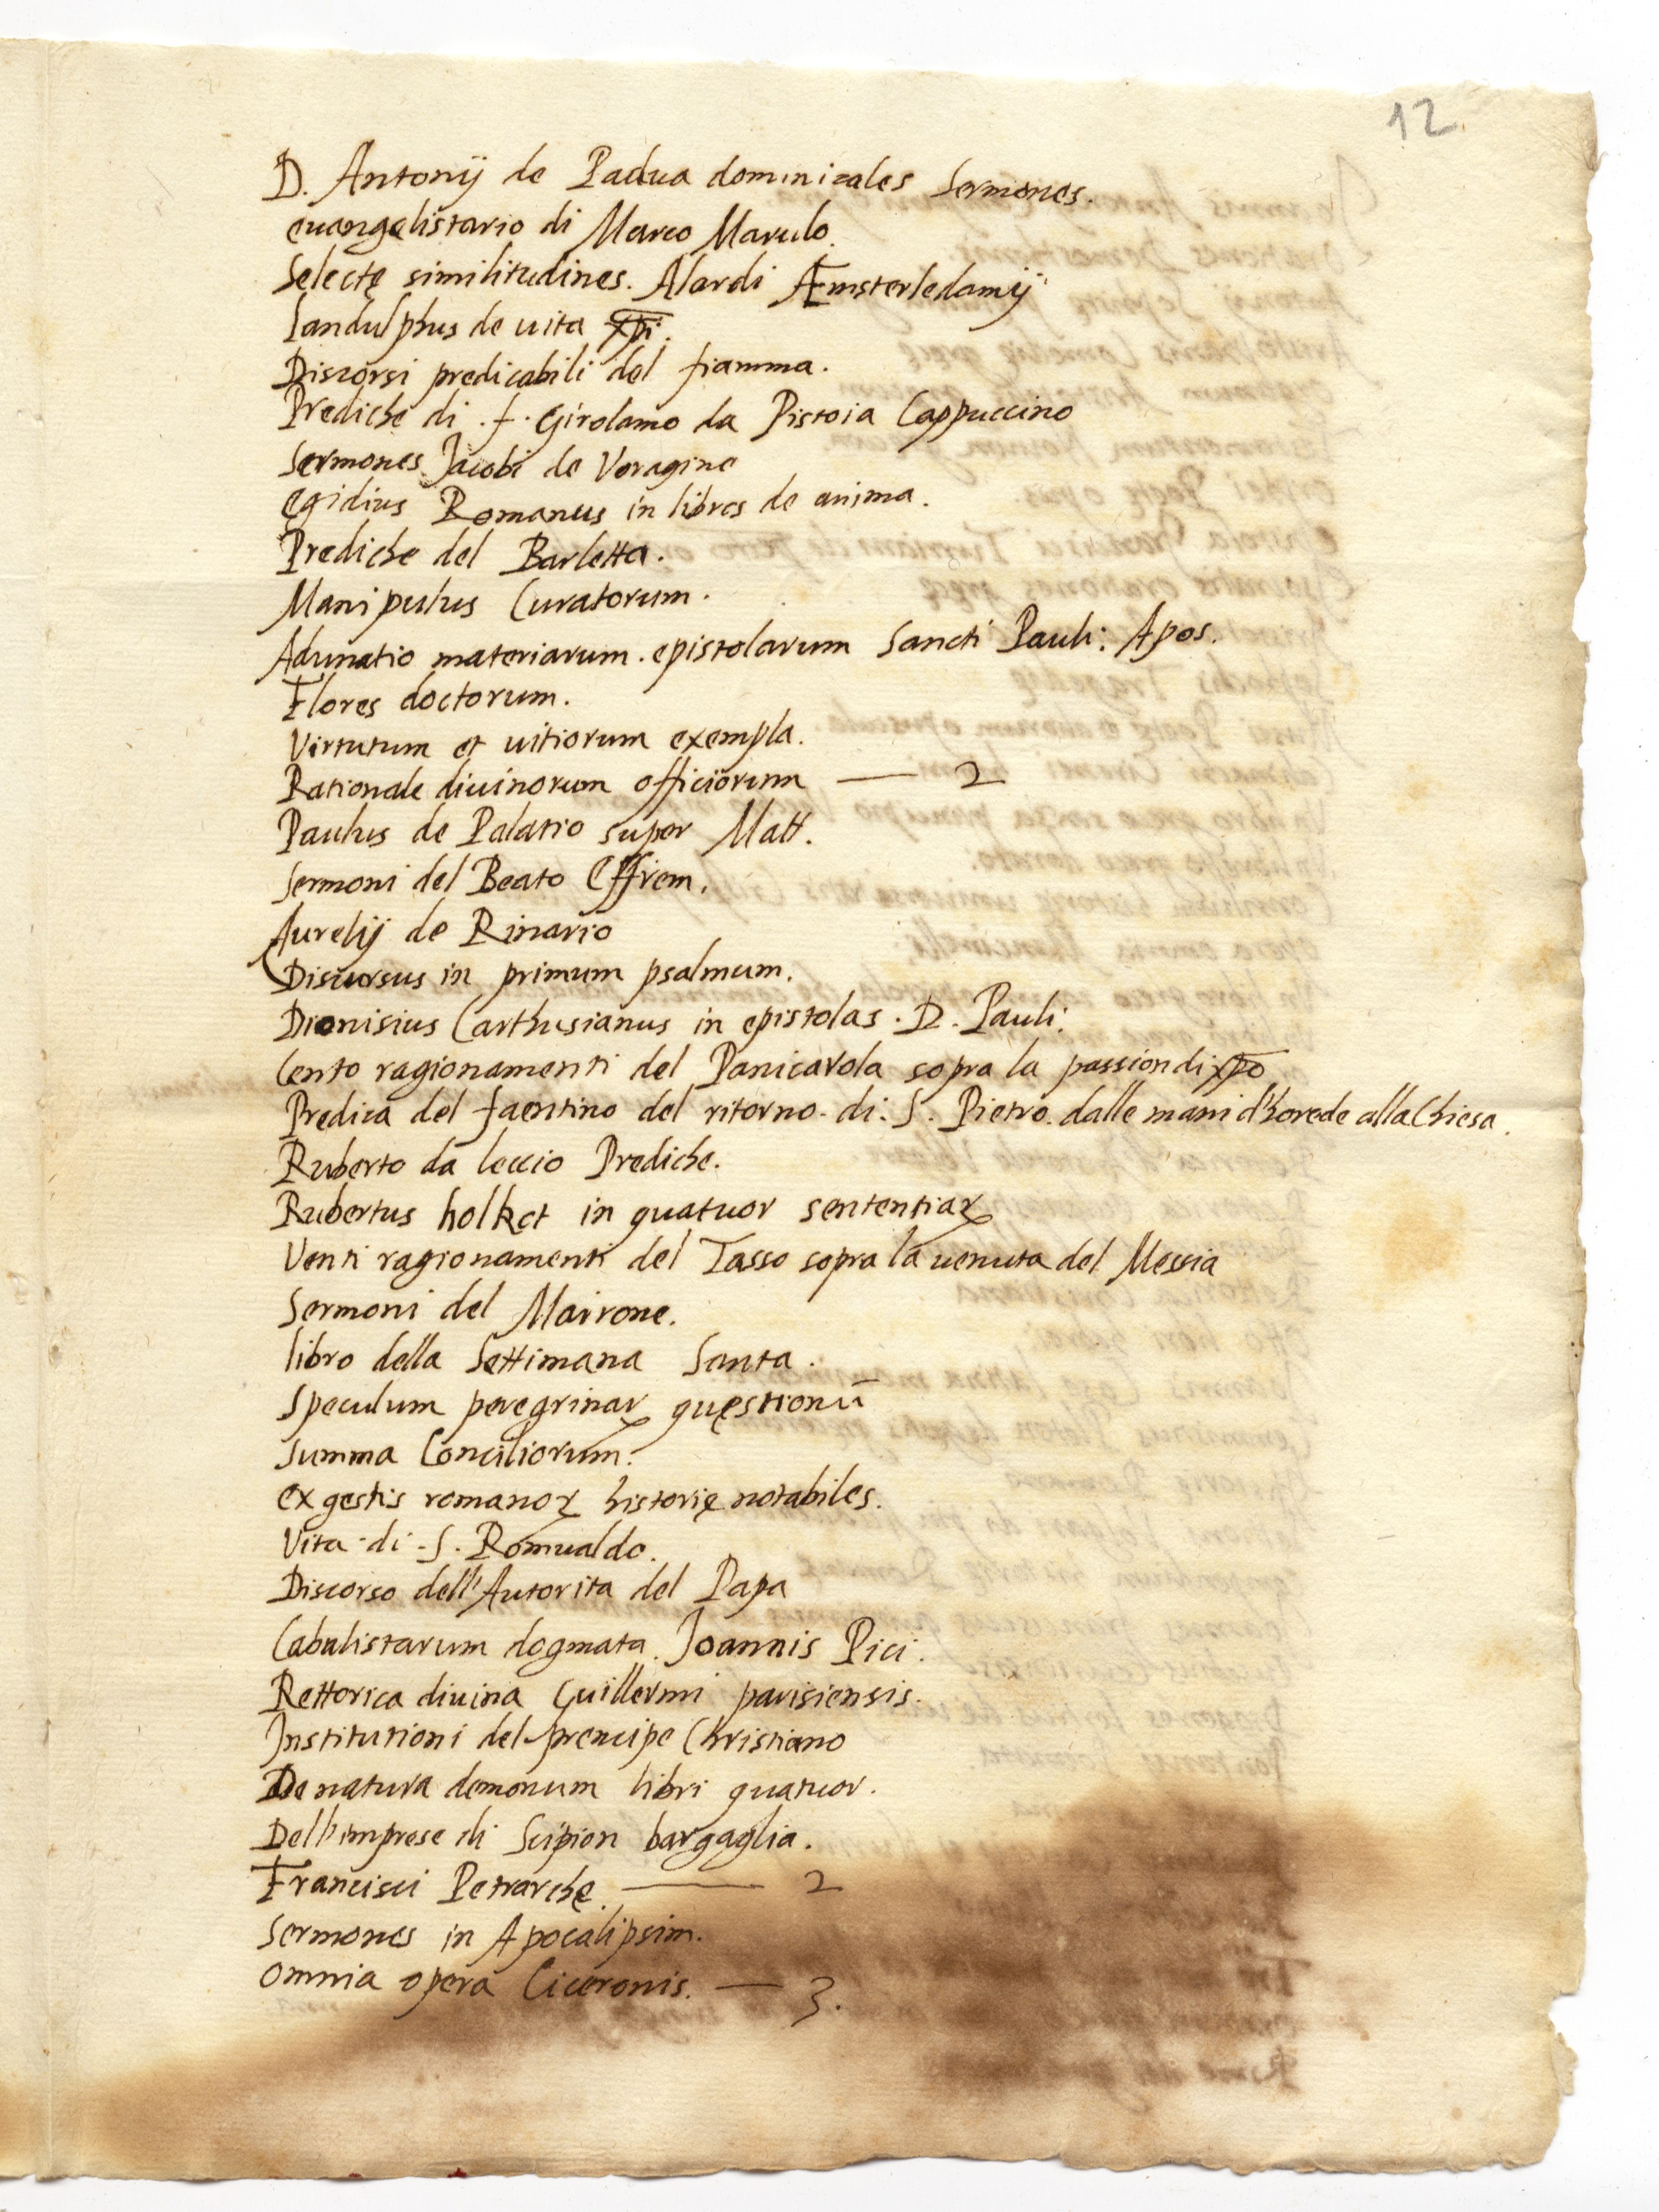 12
D. Antonij de Padua dominicales Sermones.
euangelistario di Marco Marulo.
Selectę similitudines. Alardi Æmsterledamij
Landulphus de uita xp̄i.
Discorsi predicabili del fiamma.
Prediche di .f. Girolamo da Pistoia Cappuccino
Sermones Jacobi de Voragine
Egidius Romanus in libros de anima.
Prediche del Barletta.
Manipulus Curatorum.
Adunatio materiarum. epistolarum Sancti Pauli: Apos.
Flores doctorum.
Virtutum et uitiorum exempla.
Rationale diuinorum officiorum — 2
Paulus de Palatio super Matt.
Sermoni del Beato Effrem.
Aurelij de Rinario
Discursus in primum psalmum.
Dionisius Carthusianus in epistolas. D. Pauli:
Cento ragionamenti del Panicarola sopra la passion di xp̄o
Predica del faentino del ritorno. di: S. Pietro. dalle mani d'horede alla Chiesa.
Ruberto da leccio Prediche.
Rubertus holket in quatuor sententiaꝝ
Venti ragionamenti del Tasso sopra la uenuta del Messia
Sermoni del Mairone.
libro della Settimana Santa.
Speculum peregrinaꝝ quęstionū
Summa Conciliorum.
ex gestis romanoꝝ historię notabiles.
Vita di .S. Romualdo.
Discorso dell'Autorita del Papa
Cabalistarum dogmata. Joannis Pici.
Rettorica diuina Guillermi parisiensis.
Institutioni del prencipe Christiano
De natura demonum libri quatuor.
Dell'imprese di Scipion bargaglia.
Francisci Petrarchę. — 2
Sermones in Apocalipsim.
Omnia opera Ciceronis. — 3.